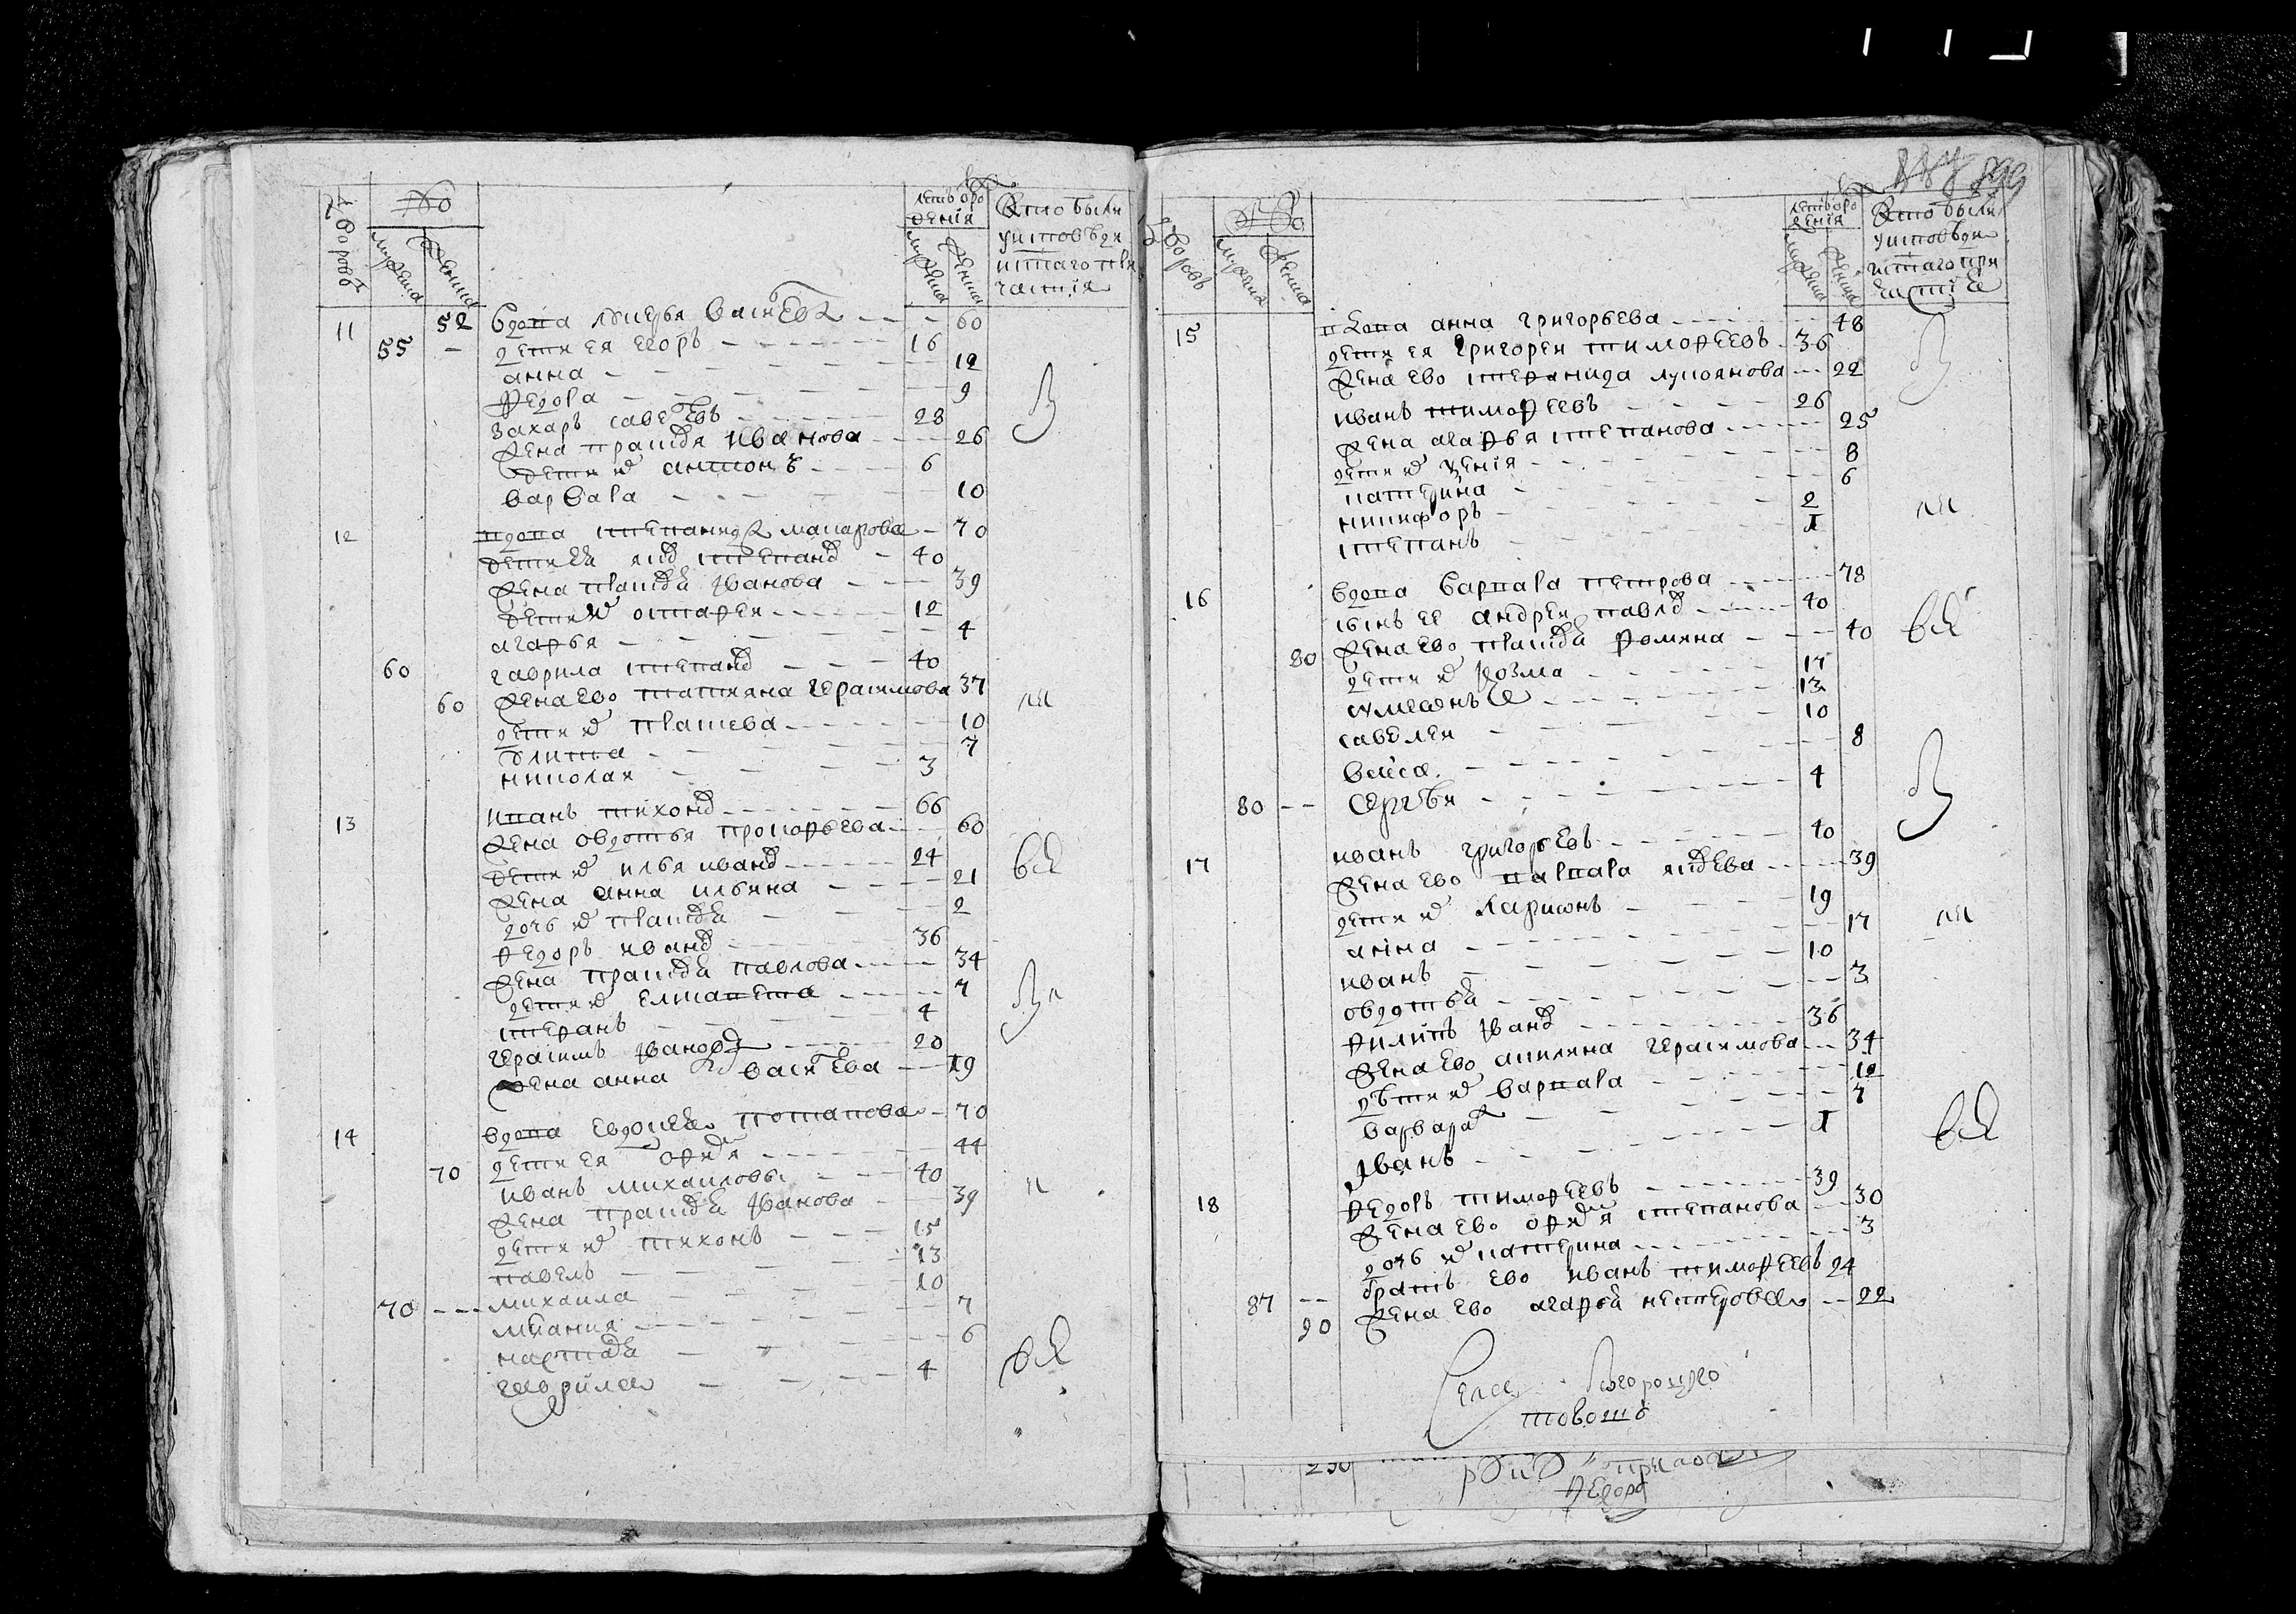 дворовъ
№
мужеска
женска
летъ от ро
дения
мужеска
женска
Кто были
у исповеди
и таго при
частия
11 52 вдова лукерья васильева 60
55 дети ея егоръ 16
анна 12
федора 9
захаръ савельевъ 28
жена прасковья иванова 26
дети их антонъ 6
варвара 10
12 вдова степанида макарова 70
дети ея степанов 40
жена прасковья иванова 39
дети их остафеи 12
агафья 4
60 гаврила степанов 40
60 жена ево татияна герасимова 37
дети их 10
улита 7
николаи 3
13 иванъ тихонов 66
жена овдотья прокофьева 60
дети их илья иванов 24
жена анна ильина 21
дочь их прасковья 2
федоръ иванов 36
жена прасковья павлова 34
дети их елисавета 7
стефанъ 4
герасимъ иванов 20
жена анна васильева 19
14 вдова евдокея потапова 70
70 дети ея офимья 44
иванъ михаиловъ 40
жена прасковья иванова 39
дети их тихонъ 15
павелъ 13
70 михаила 10
мелания 7
настасья 6
гаврила 4
899
дворовъ
№
мужеска
женска
летъ от ро
дения
мужеска
женска
Кто были
у исповеди
и таго при
частие
15 вдова анна григорьева 48
дети ея григореи тимофеевъ 36
жена ево степанида лукоянова 22
иванъ тимофеевъ 26
жена агафья степанова 25
дети их ксения 8
катерина 6
никифоръ 2
степанъ 1
16 вдова варвара петрова 78
сынъ ее андреи павлов 40
80 жена ево прасковья фомина 40
дети их козма 17
сумеонъ 13
савелеи 10
васса 8
80 сергеи 4
17 иванъ григорьевъ 40
жена ево варвара 39
дети их ларионъ 19
анна 17
иванъ 10
овдотья 3
филипъ иванов 36
жена ево акилина герасимова 34
дети их варвара 12
варвара 7
иванъ 1
18 федоръ тимофеевъ 39
жена ево офимья степанова 30
дочь их катерина 3
87 братъ ево иванъ тимофеевъ 24
90 жена ево агафья нестерова 22
Села Богородцкого
товожъ
230
федоръ